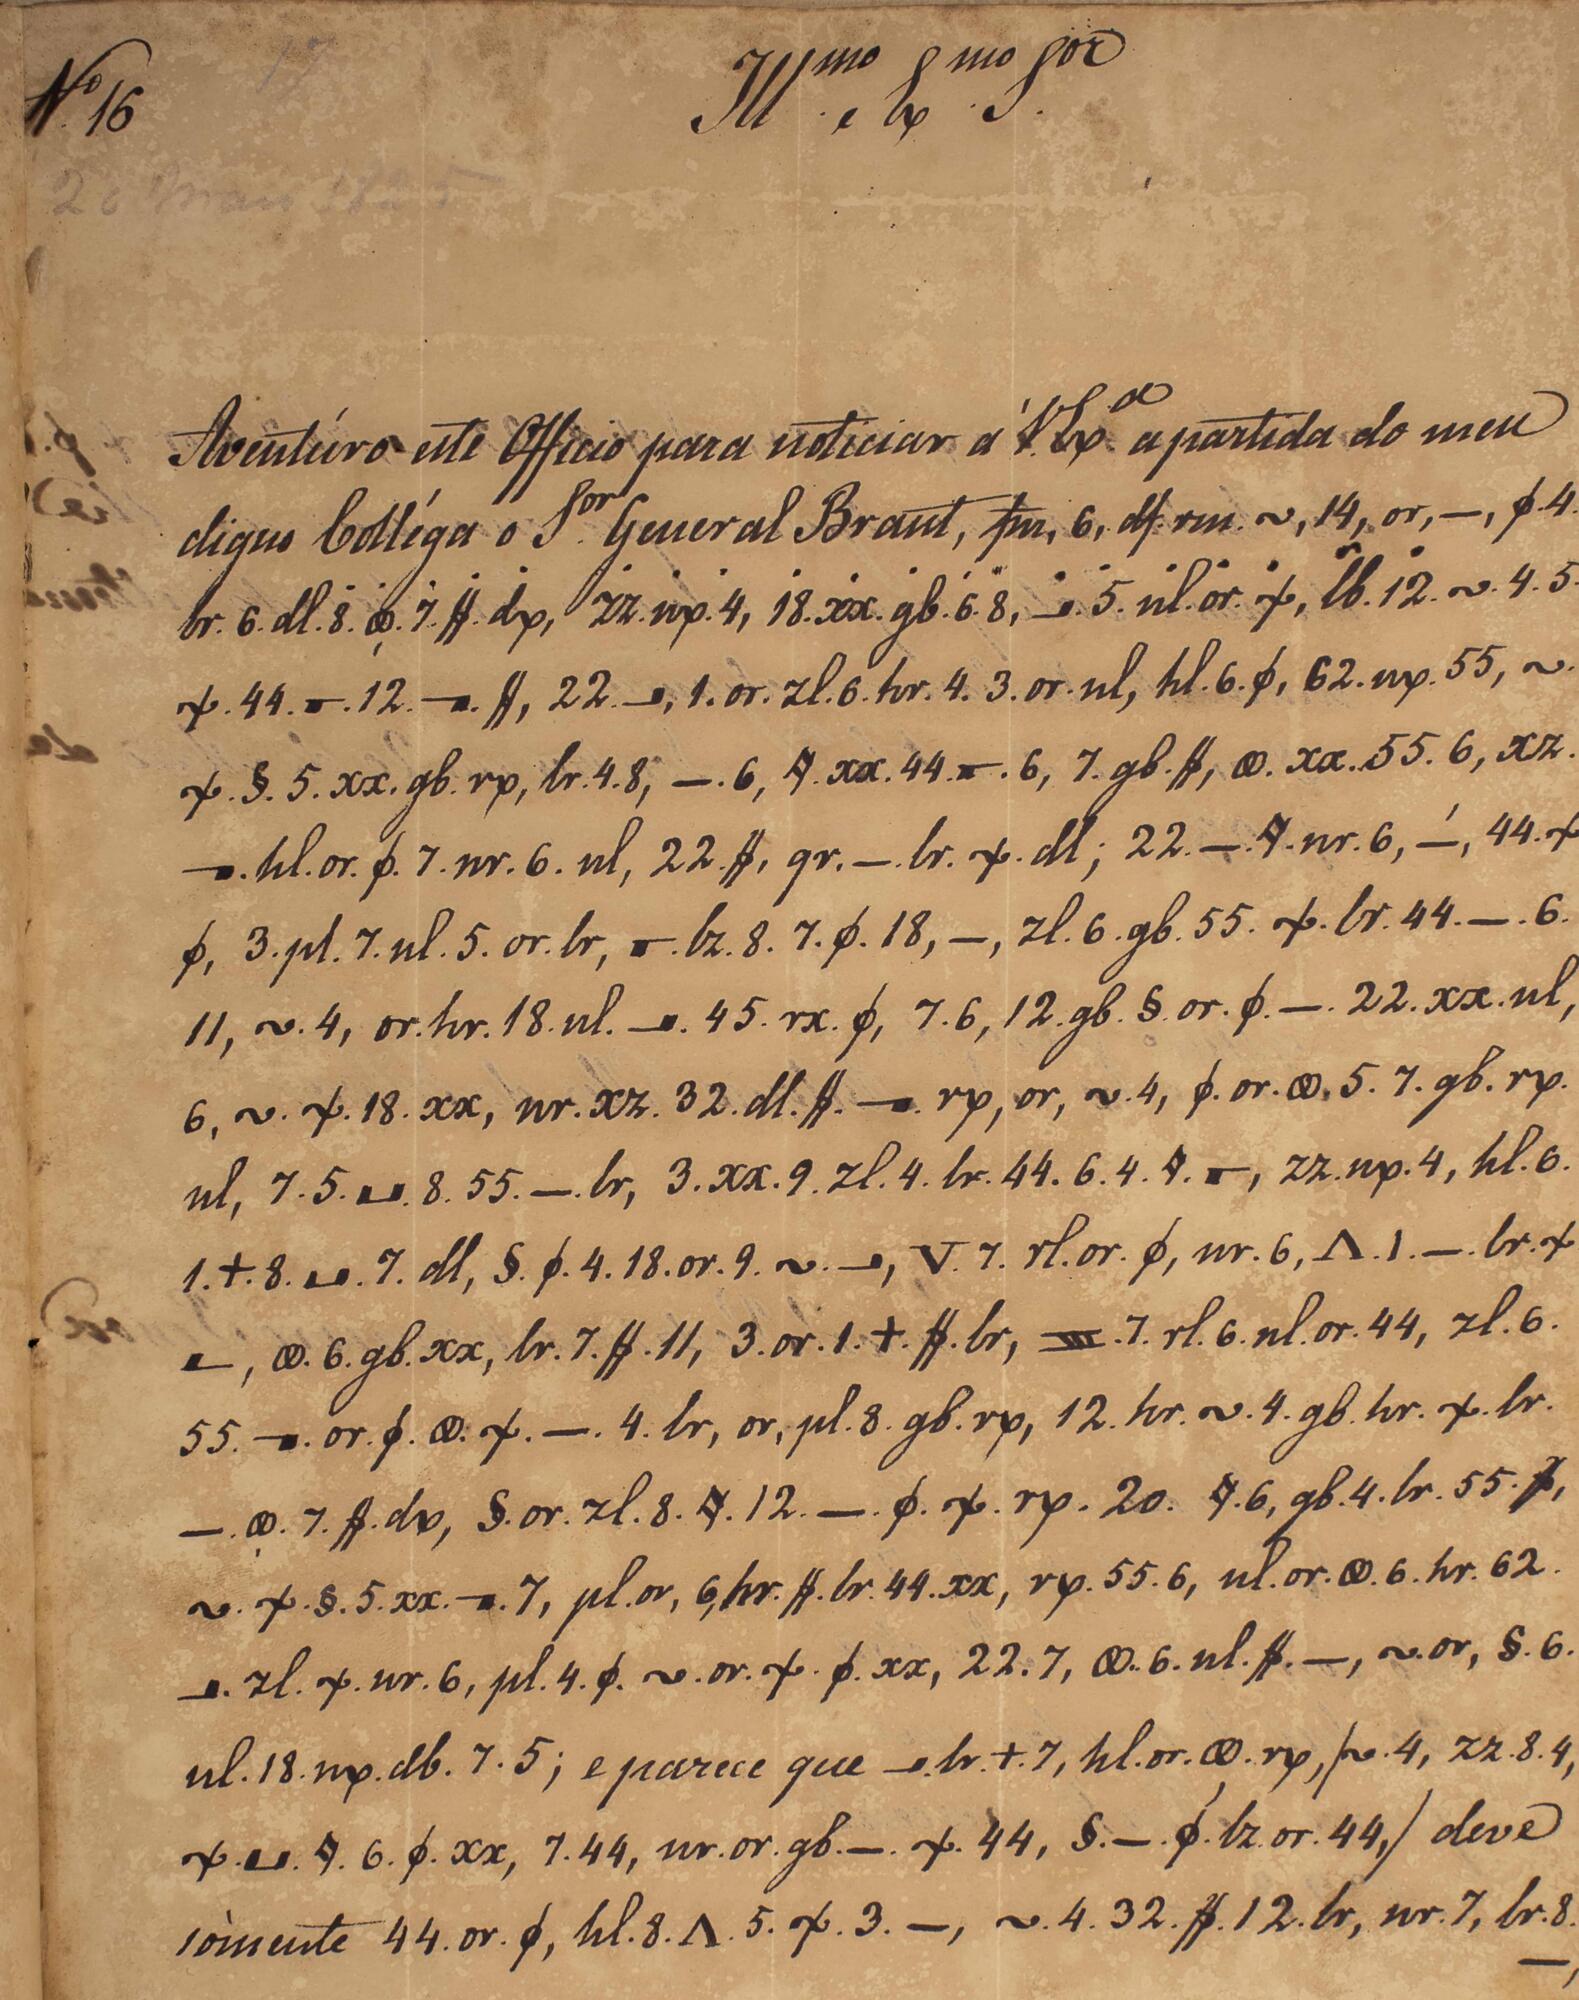 Nº 16
Illmo e Exmo Sor
Aventúro este Officio para noticiar á V. Exa a partida do meu
digno Colléga o Sor General Brant, fm, 6, df. rm. ~, 14, or, —, ϕ. 4.
br. 6. dl. 8. ꝏ. 7. ∯. dp, zz. np. 4, 18. xx. gb. 6. 8, ⨼. 5. nl. or. ⥾, lb. 12. ~. 4. 5.
⥾. 44. ╾. 12. ╼. ∯, 22. ⨼, 1. or. zl. 6. hr. 4. 3. or. nl, hl. 6. ϕ, 62. np. 55, ~.
⥾. §. 5. xx. gb. rp, br. 4. 8, —. 6, ᛩ. xx. 44. ╾. 6, 7. gb. ∯, ꝏ. xx. 55. 6, xz.
╼. hl. or. ϕ. 7. nr. 6. nl, 22. ∯, qr. —. br. ⥾. dl; 22. —. ᛩ. nr. 6, —, 44. ⥾
ϕ, 3. pl. 7. nl. 5. or. br, ╾. bz. 8. 7. ϕ. 18, —, zl. 6. gb. 55. ⥾. br. 44. —. 6.
11, ~. 4, or. hr. 18. nl. ⨼. 45. rx. ϕ, 7. 6, 12. gb. §. or. ϕ. —. 22. xx. nl,
6, ~. ⥾. 18. xx, nr. xz. 32. dl. ∯. ╼. rp, or, ~. 4, ϕ. or. ꝏ. 5. 7. gb. rp.
nl, 7. 5. ⊔. 8. 55. —. br, 3. xx. 9. zl. 4. br. 44. 6. 4. ᛩ. ╾, zz. np. 4, hl. 6.
1. +. 8. ⊔. 7. dl, §. ϕ. 4. 18. or. 9. ~. ⨼, V. 7. rl. or. ϕ, nr. 6, Λ. 1. —. br. ⥾
╾, ꝏ. 6. gb. xx, br. 7. ∯. 11, 3. or. 1. +. ∯. br, ᚎ. 7. rl. 6. nl. or. 44, zl. 6.
55. ╼. or. ϕ. ꝏ. ⥾. —. 4. br, or, pl. 8. gb. rp, 12. hr. ~. 4. gb. hr. ⥾. br.
—. ꝏ. 7. ∯. dp, §. or. zl. 8. ᛩ. 12. —. ϕ. ⥾. rp. 20. ᛩ. 6, gb. 4. br. 55. ∯,
~. ⥾. §. 5. xx. ╼. 7, pl. or, 6, hr. ∯. br. 44. xx, rp. 55. 6, nl. or. ꝏ. 6. hr. 62.
⨼. zl. ⥾. nr. 6, pl. 4. ϕ. ~. or. ⥾. ϕ. xx, 22. 7, ꝏ. 6. nl. ∯. —, ~. or, §. 6.
nl. 18. np. db. 7. 5; e parece que ⨼. br. +. 7, hl. or. ꝏ. rp, /~. 4, zz. 8. 4,
⥾. ⊔. ᛩ. 6. ϕ. xx, 7. 44, nr. or. gb. —. ⥾. 44, §. —. ϕ. bz. or. 44, / deve
sòmente 44. or. ϕ, hl. 8. Λ. 5. ⥾. 3. —, ~. 4. 32. ∯. 12. br, nr. 7, br. 8.
—,